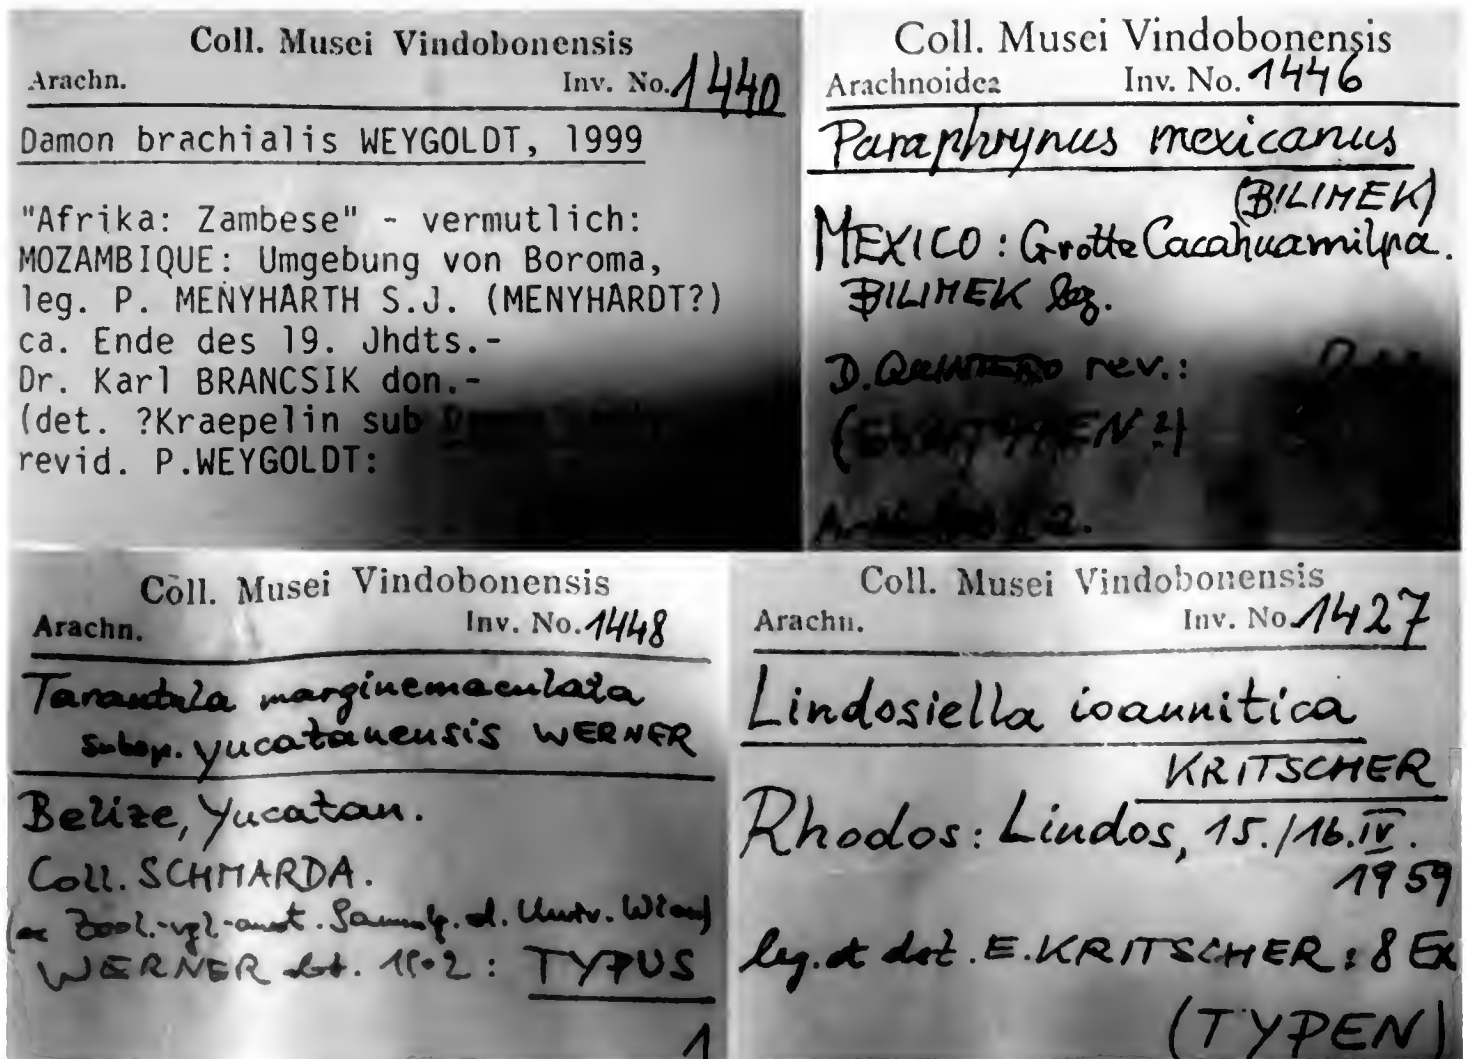 Coll. Musei Vindobonensis
Arachn. Inv. No. 1440
Damon brachialis WEYGOLDT, 1999
"Afrika: Zambese" - vermutlich:
MOZAMBIQUE: Umgebung von Boroma,
leg. P. MENYHARTH S.J. (MENYHARDT?)
ca. Ende des 19. Jhdts.-
Dr. Karl BRANCSIK don.-
(det. ?Kraepelin sub
revid. P.WEYGOLDT:
Coll. Musei Vindobonensis
Arachnoidea Inv. No. 1446
Paraphrynus mexicanus
(BILIMEK)
MEXICO: Grotte Cacahuamilpa.
BILIMEK leg.
D. QUINTERO rev.:
2.
Coll. Musei Vindobonensis
Arachn. Inv. No. 1448
Tarantula marginemaculata
subsp. yucatanensis WERNER
Belize, Yucatan.
Coll. SCHMARDA.
(ex Zool.-vgl.-anat. Sammlg. d. Univ. Wien)
WERNER det. 1902: TYPUS
1
Coll. Musei Vindobonensis
Arachn. Inv. No. 1427
Lindosiella ioannitica
KRITSCHER
Rhodos: Lindos, 15./16.IV.
1959
leg. et det. E. KRITSCHER: 8 Ex
(TYPEN)